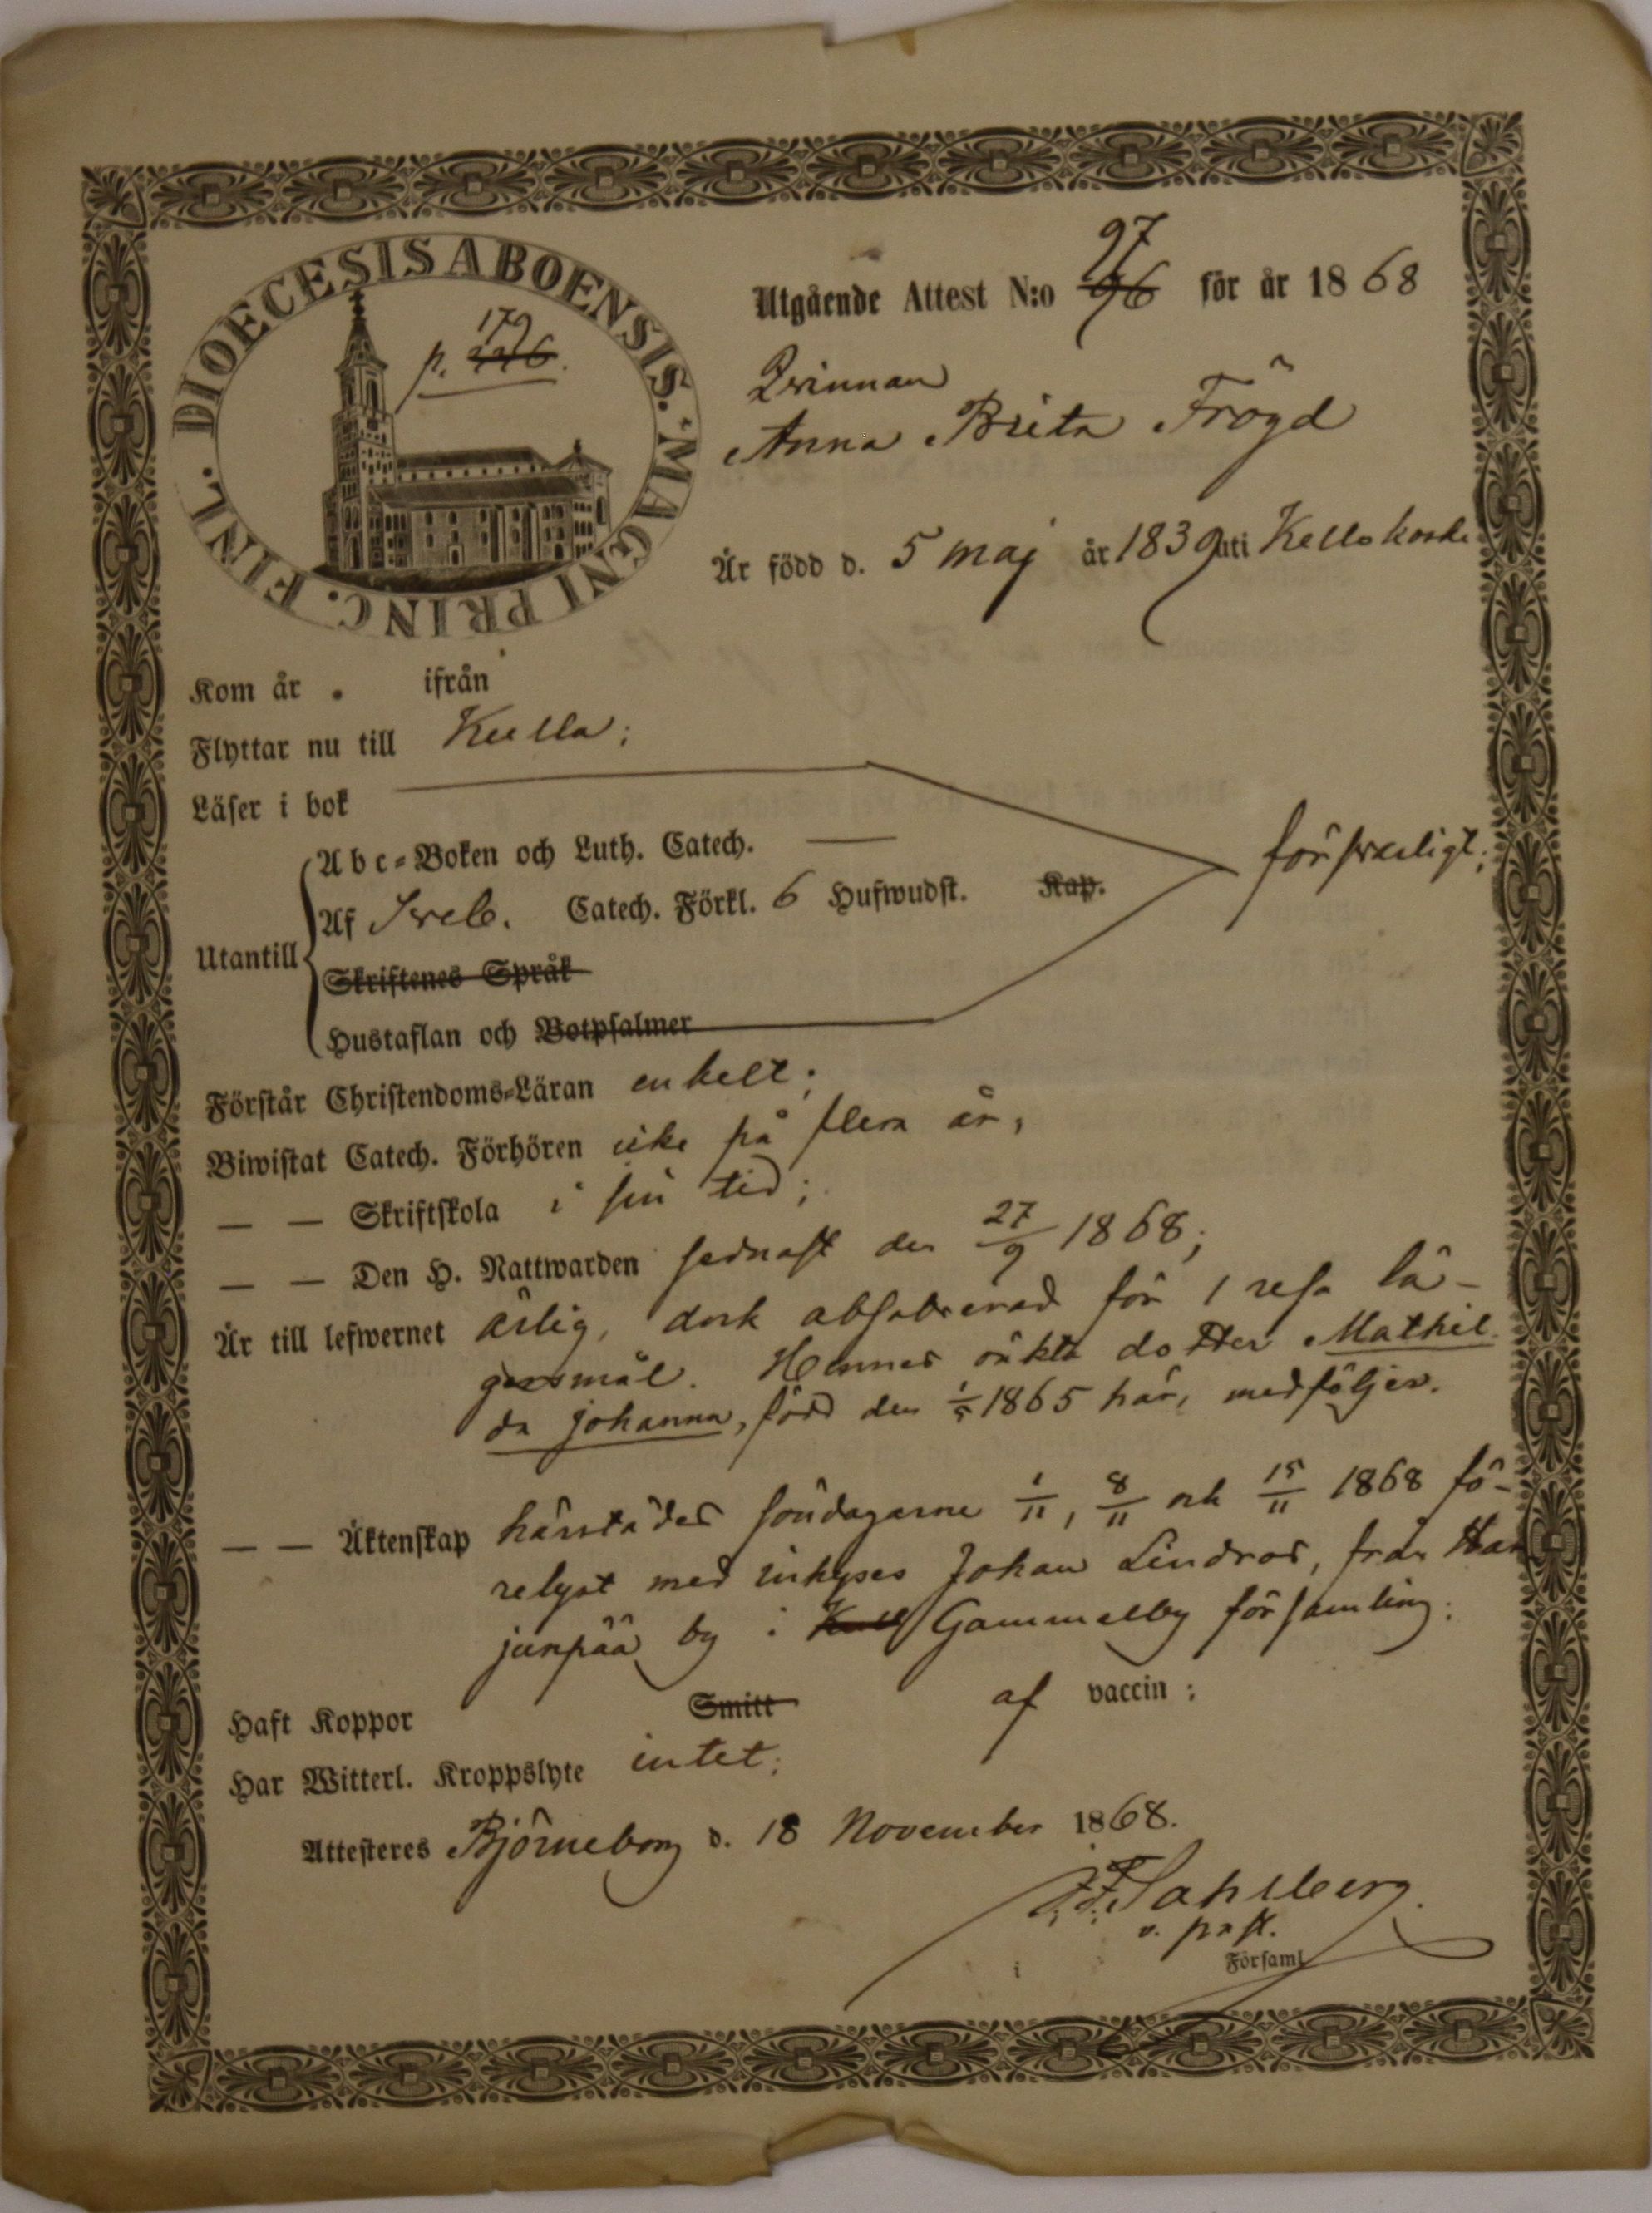 DIOECESIS ABOENSIS. MAGNI PRINC. FINL.
p. 179 226.
Utgående Attest N:o 97 96 för år 1868
Qvinnan
Anna Brita Fröyd
Är född d. 5 maj år 1839 uti Kellokoski
Kom år . ifrån
Flyttar nu till Kulla;
Läser i bok
Utantill
Abc-Boken och Luth. Catech. —
Af Sveb. Catech. Förkl. 6 Hufwudst. Kap.
Skriftenes Språk
Hustaflan och Botpsalmer
försvarligt;
Förstår Christendoms-Läran enkelt;
Biwistat Catech. Förhören icke på flera år,
— — Skriftskola i sin tid;
— — Den H. Nattwarden sednast den 27/9 1868;
Är till lefwernet ärlig, dock absolverad för 1 resa lä-
gersmål. Hennes oäkta dotter Mathil-
da Johanna, född den 1/5 1865 här, medföljer.
— — Äktenskap härstädes söndagarne 1/11, 8/11 och 15/11 1868 fö-
relyst med inhyses Johan Lindros, från Har
junpää by i Kull Gammelby församling.
Haft Koppor Smitt af vaccin;
Har Witterl. Kroppslyte intet;
Attesteres Björneborg d. 18 November 1868.
Sahlberg.
v. past.
i Församl.